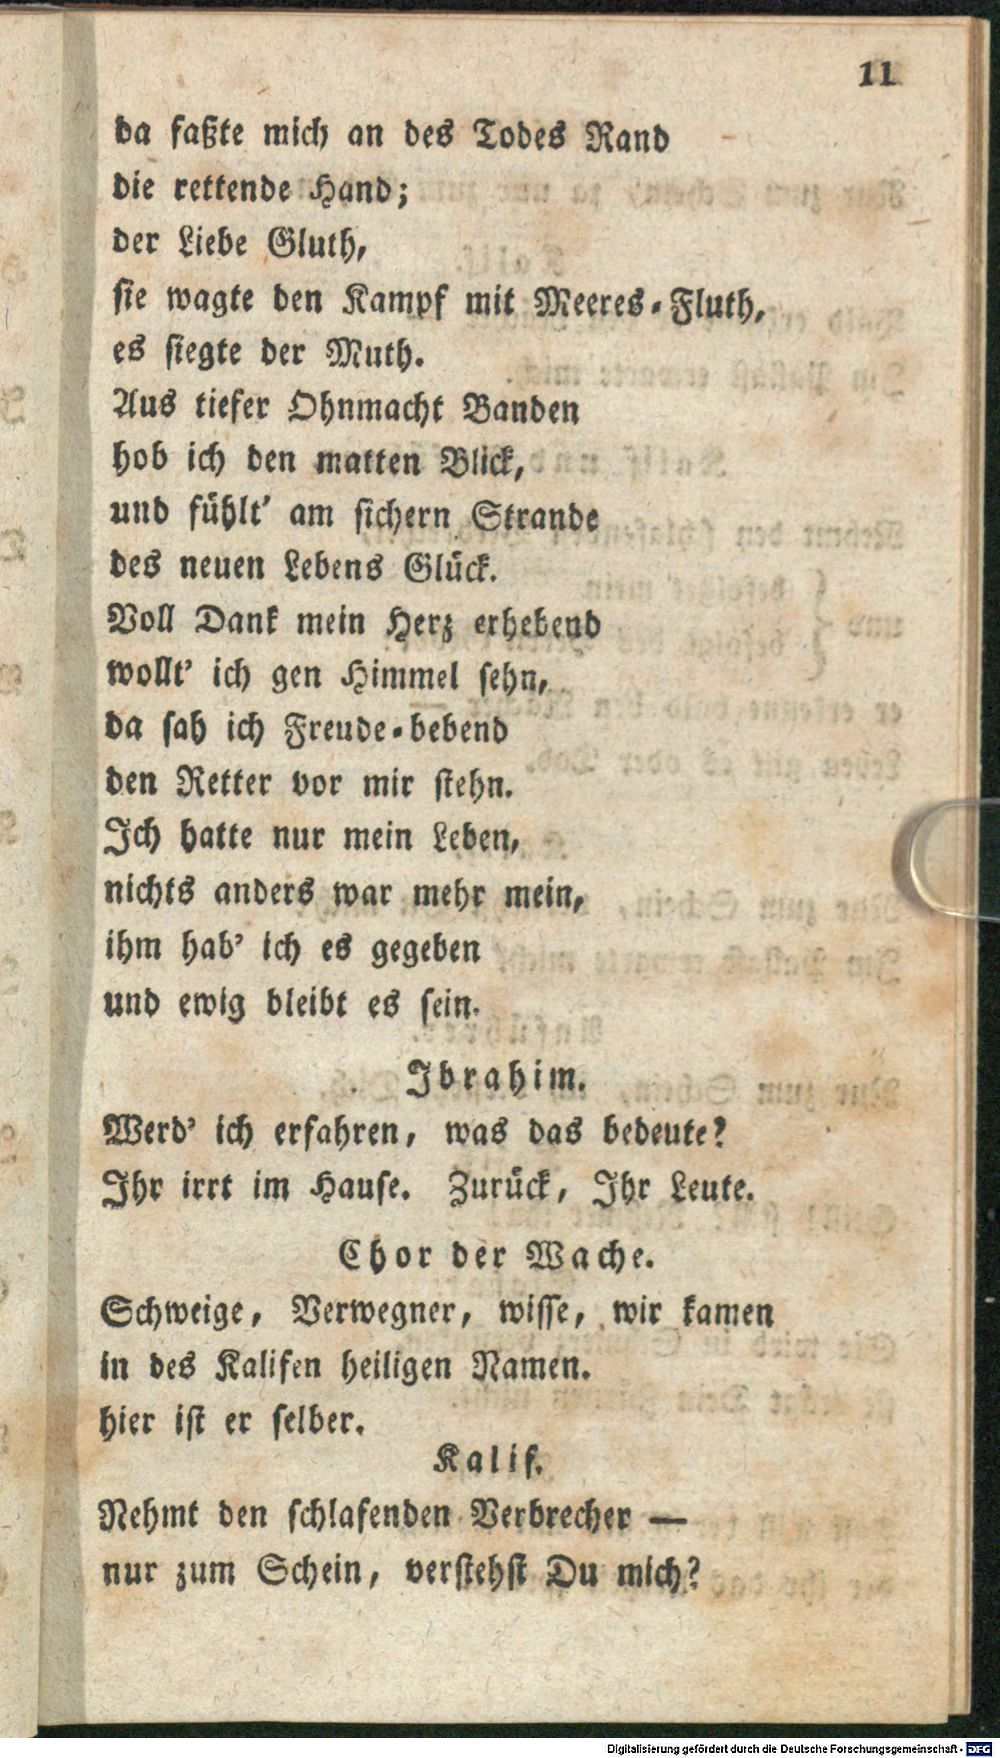 11
da faßte mich an des Todes Rand
die rettende Hand;
der Liebe Gluth,
sie wagte den Kampf mit Meeres-Fluth,
es siegte der Muth.
Aus tiefer Ohnmacht Banden
hob ich den matten Blick,
und fühlt' am sichern Strande
des neuen Lebens Glück.
Voll Dank mein Herz erhebend
wollt' ich gen Himmel sehn,
da sah ich Freude-bebend
den Retter vor mir stehn.
Ich hatte nur mein Leben,
nichts anders war mehr mein,
ihm hab' ich es gegeben
und ewig bleibt es sein.
Ibrahim.
Werd' ich erfahren, was das bedeute?
Ihr irrt im Hause. Zurück, Ihr Leute.
Chor der Wache.
Schweige, Verwegner, wisse, wir kamen
in des Kalifen heiligen Namen.
hier ist er selber.
Kalif.
Nehmt den schlafenden Verbrecher —
nur zum Schein, verstehst Du mich?
Digitalisierung gefördert durch die Deutsche Forschungsgemeinschaft - DFG